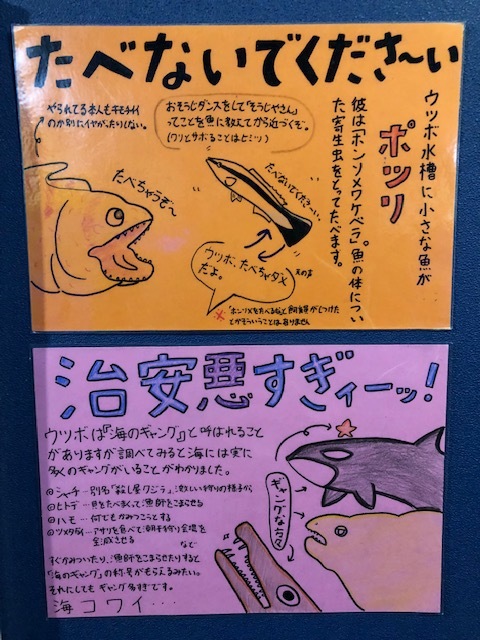 たべないでくださ〜い
ウツボ水槽に小さな魚が
ポツリ
彼は「ホンソメワケベラ」。魚の体につい
た寄生虫をとってたべます。
おそうじダンスをして「そうじやさん」
ってことを魚に教えてから近づくぞ。
(ワリとサボることはヒミツ)
やられてる本人もキモチイイ
のか別にイヤがったりしない。
たべちゃうぞ〜
たべないでくださ〜い…
ウツボ、たべちゃダメ
だよ。
天の声
※「ホンソメをたべるな」と飼育員がしつけた
とかそういうことはありません
治安悪すぎィーッ!
ウツボは『海のギャング』と呼ばれること
がありますが調べてみると海には実に
多くのギャングがいることがわかりました。
◎シャチ…別名「殺し屋クジラ」激しい狩りの様子から
◎ヒトデ…貝をたべまくって漁師をこまらせる
◎ハモ…何でもかみつこうとする
◎ツメタガイ…アサリを食べて潮干狩り会場を
全滅させる
など
すぐかみついたり、漁師をこまらせたりすると
「海のギャング」の称号がもらえるみたい。
それにしてもギャング多すぎです。
海コワイ…
ギャングな方々